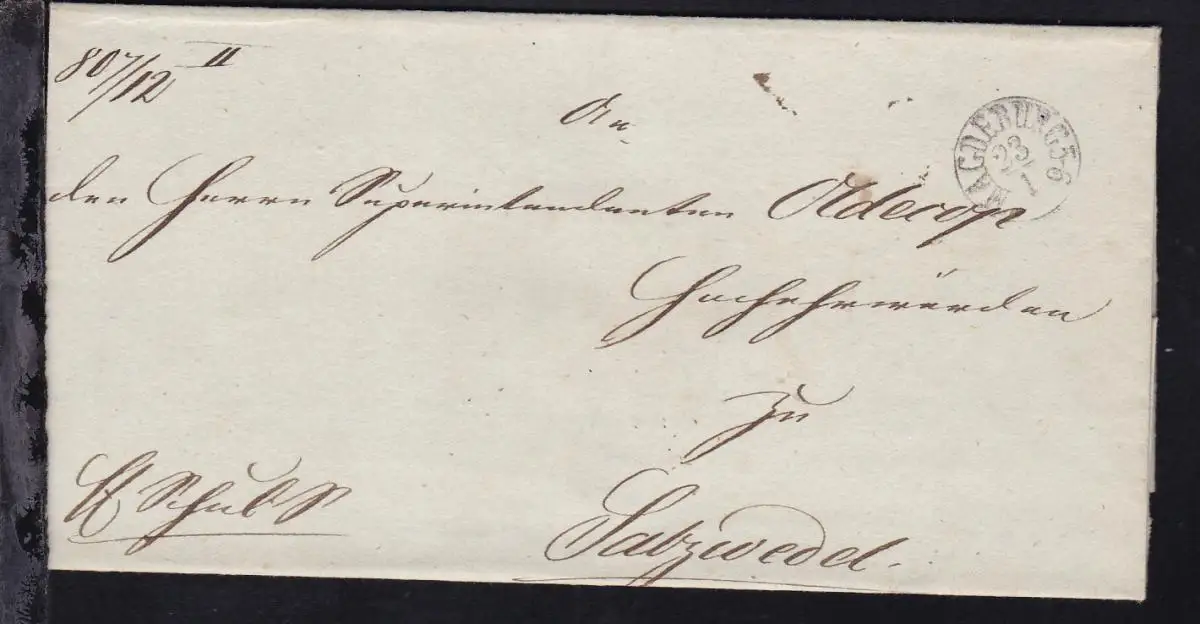 807/12 II
An
MAGDEBURG 5-6
23/1
den Herrn Superintendenten Oldecop
Hochehrwürden
zu
Salzwedel.
Schul S